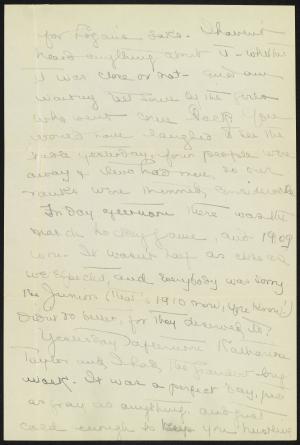 for Logais sake. I haven't
heard anything about it - whether
it was close or not - and am
waiting till some of the girls
who went come back. You
would have laughed to see the
table yesterday, four people were
away & two had mea, so our
ranks were thinned, considerably.
Friday afternoon there was the
match hockey game, and 1909
won. It wasn't half as close as
we expected, and everybody was sorry
the Juniors (that's 1910 now, you know!)
didn't do better, for they deserved to.
Yesterday afternoon Katharine
Taylor and I took the grandest long
walk. It was a perfect day, just
as gray as anything, and just
cold enough to keep you hustling